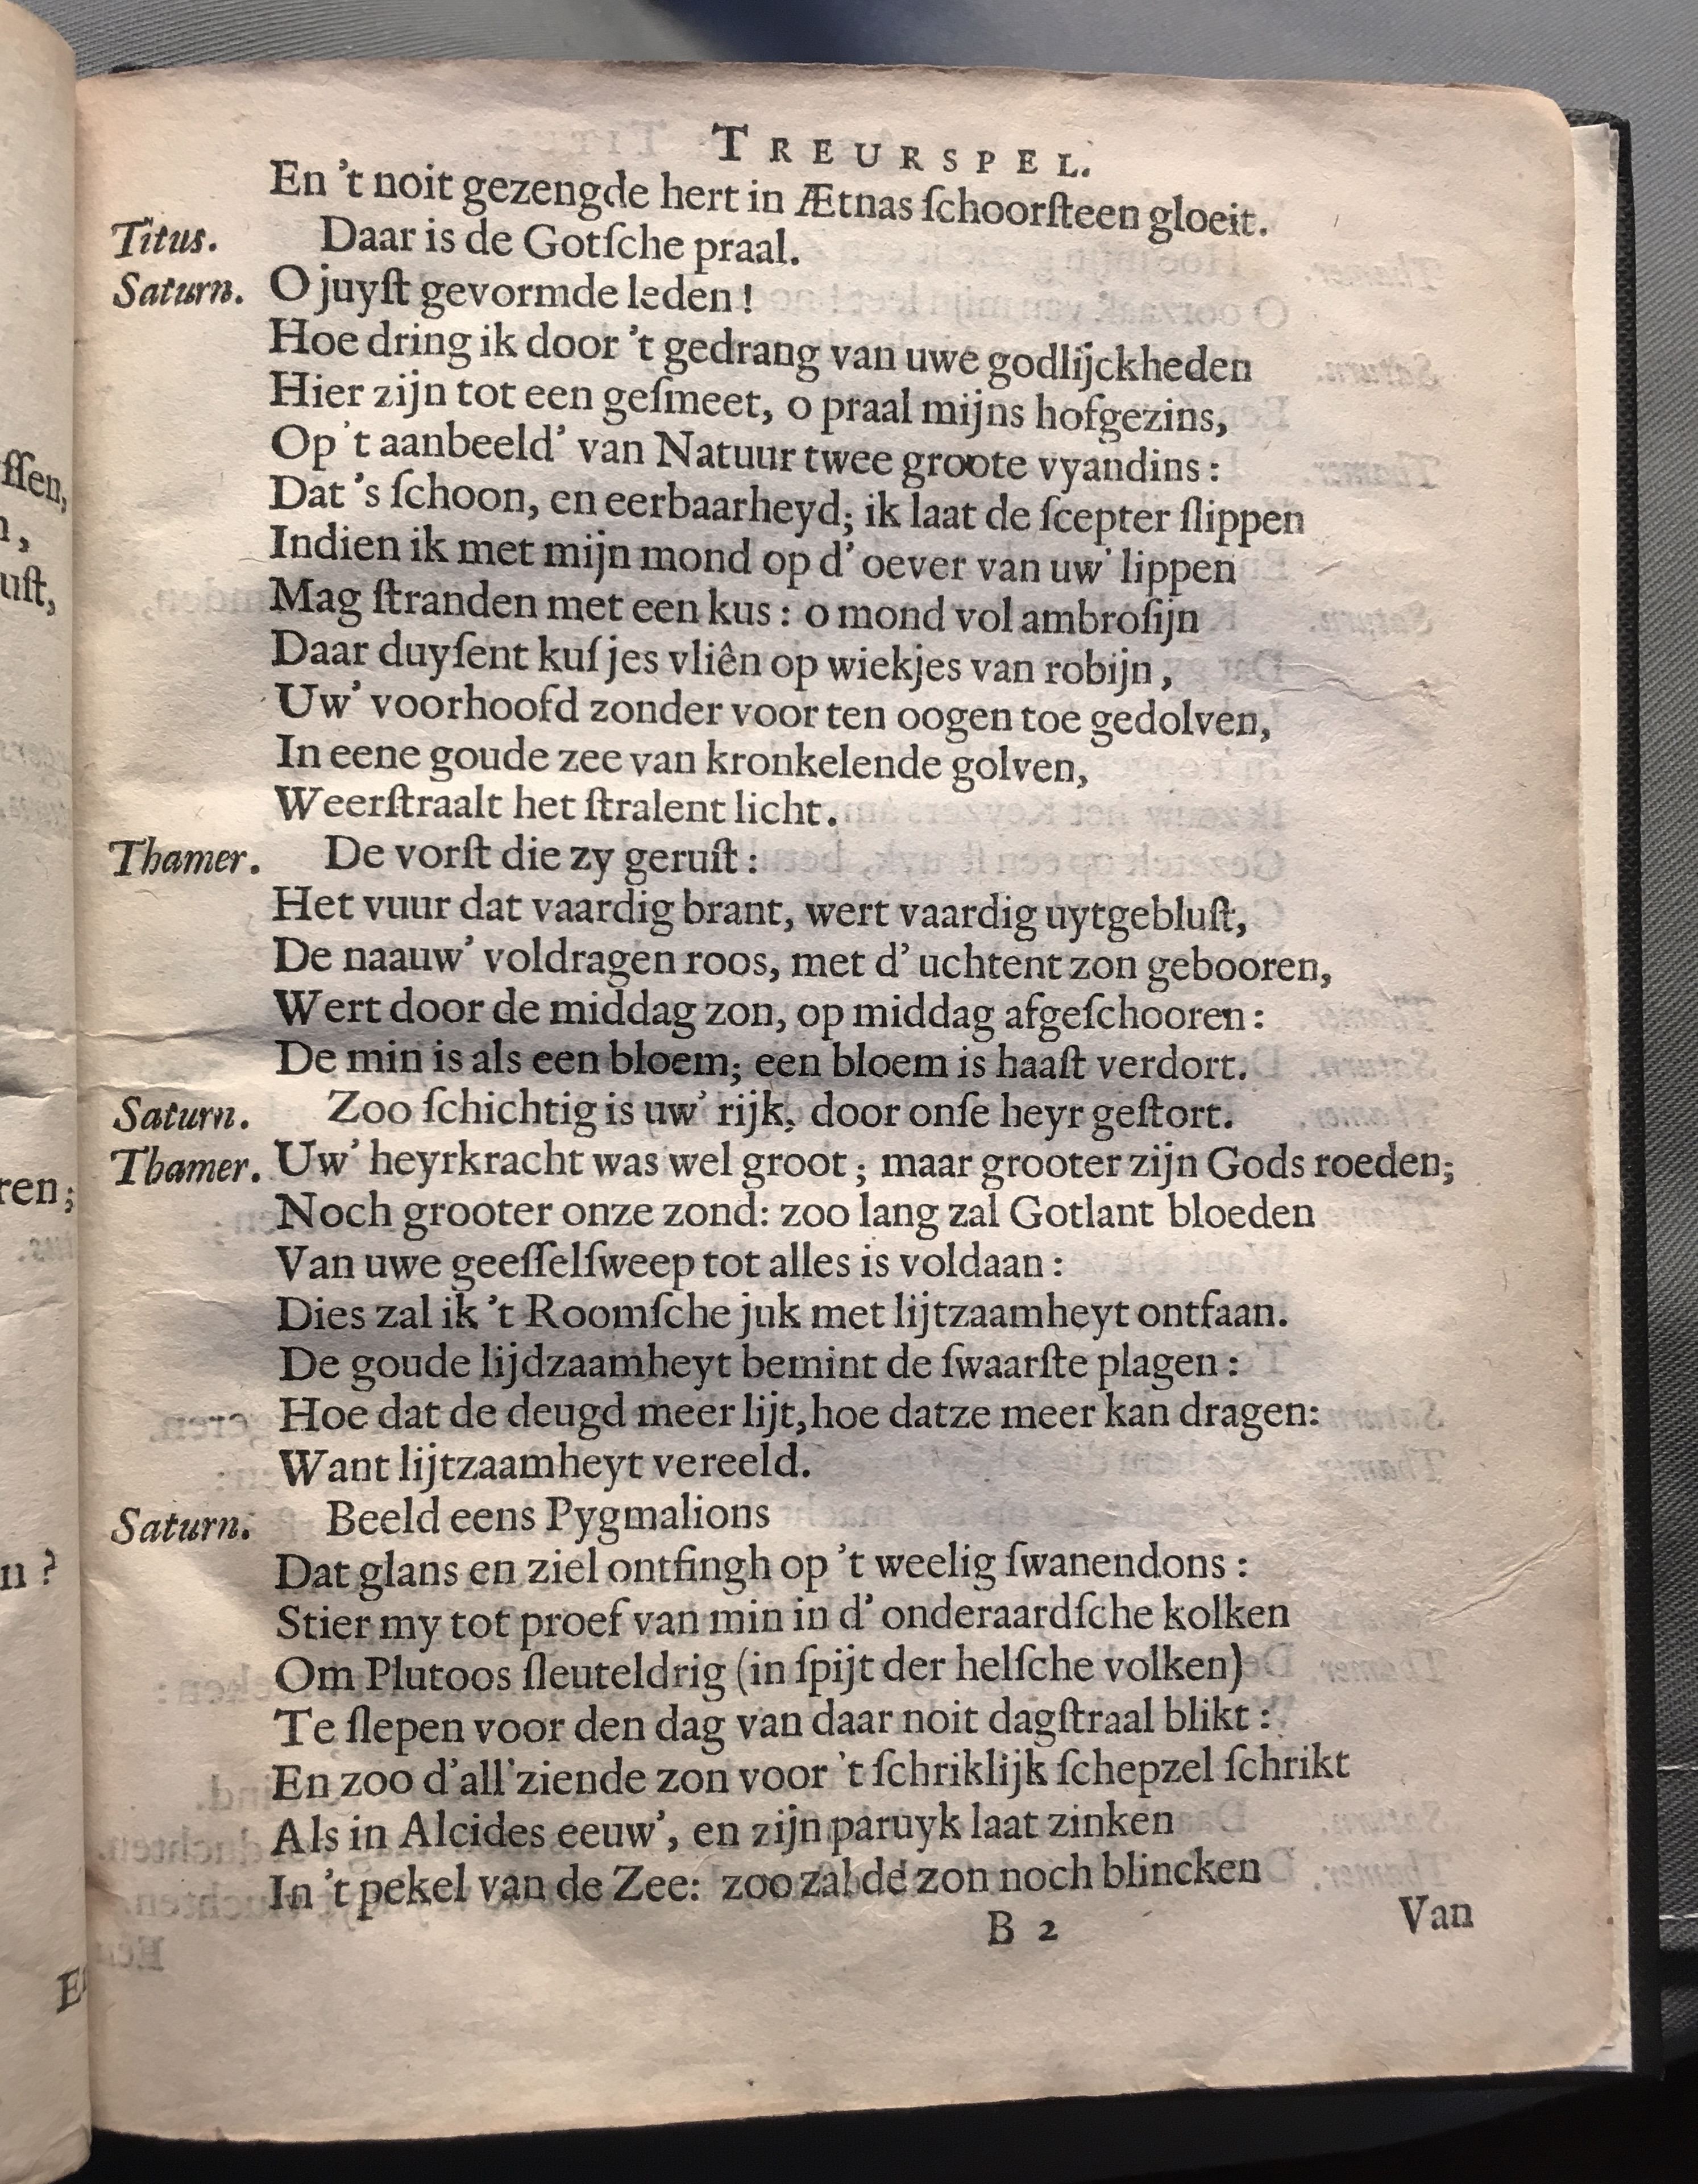 TREURSPEL.
En 't noit gezengde hert in Ætnas ſchoorſteen gloeit.
Titus. Daar is de Gotſche praal.
Saturn. O juyſt gevormde leden!
Hoe dring ik door 't gedrang van uwe godlijckheden
Hier zijn tot een geſmeet, o praal mijns hofgezins,
Op 't aanbeeld' van Natuur twee groote vyandins:
Dat 's ſchoon, en eerbaarheyd; ik laat de ſcepter ſlippen
Indien ik met mijn mond op d' oever van uw' lippen
Mag ſtranden met een kus: o mond vol ambroſijn
Daar duyſent kuſjes vliên op wiekjes van robijn,
Uw' voorhoofd zonder voor ten oogen toe gedolven,
In eene goude zee van kronkelende golven,
Weerſtraalt het ſtralent licht.
Thamer. De vorſt die zy geruſt:
Het vuur dat vaardig brant, wert vaardig uytgebluſt,
De naauw' voldragen roos, met d' uchtent zon gebooren,
Wert door de middag zon, op middag afgeſchooren:
De min is als een bloem; een bloem is haaſt verdort.
Saturn. Zoo ſchichtig is uw' rijk, door onſe heyr geſtort.
Thamer. Uw' heyrkracht was wel groot; maar grooter zijn Gods roeden;
Noch grooter onze zond: zoo lang zal Gotlant bloeden
Van uwe geeſſelſweep tot alles is voldaan:
Dies zal ik 't Roomſche juk met lijtzaamheyt ontfaan.
De goude lijdzaamheyt bemint de ſwaarſte plagen:
Hoe dat de deugd meer lijt, hoe datze meer kan dragen:
Want lijtzaamheyt vereeld.
Saturn. Beeld eens Pygmalions
Dat glans en ziel ontfingh op 't weelig ſwanendons:
Stier my tot proef van min in d' onderaardſche kolken
Om Plutoos ſleuteldrig (in ſpijt der helſche volken)
Te ſlepen voor den dag van daar noit dagſtraal blikt:
En zoo d'all'ziende zon voor 't ſchriklijk ſchepzel ſchrikt
Als in Alcides eeuw', en zijn paruyk laat zinken
In 't pekel van de Zee: zoo zal de zon noch blincken
B 2
Van
ſſen,
n,
uſt,
ren;
n?